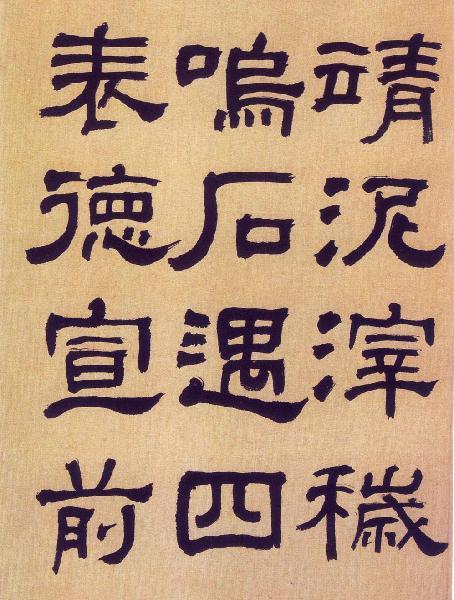 靖泥滓穢
鳴石遇四
表德宣前